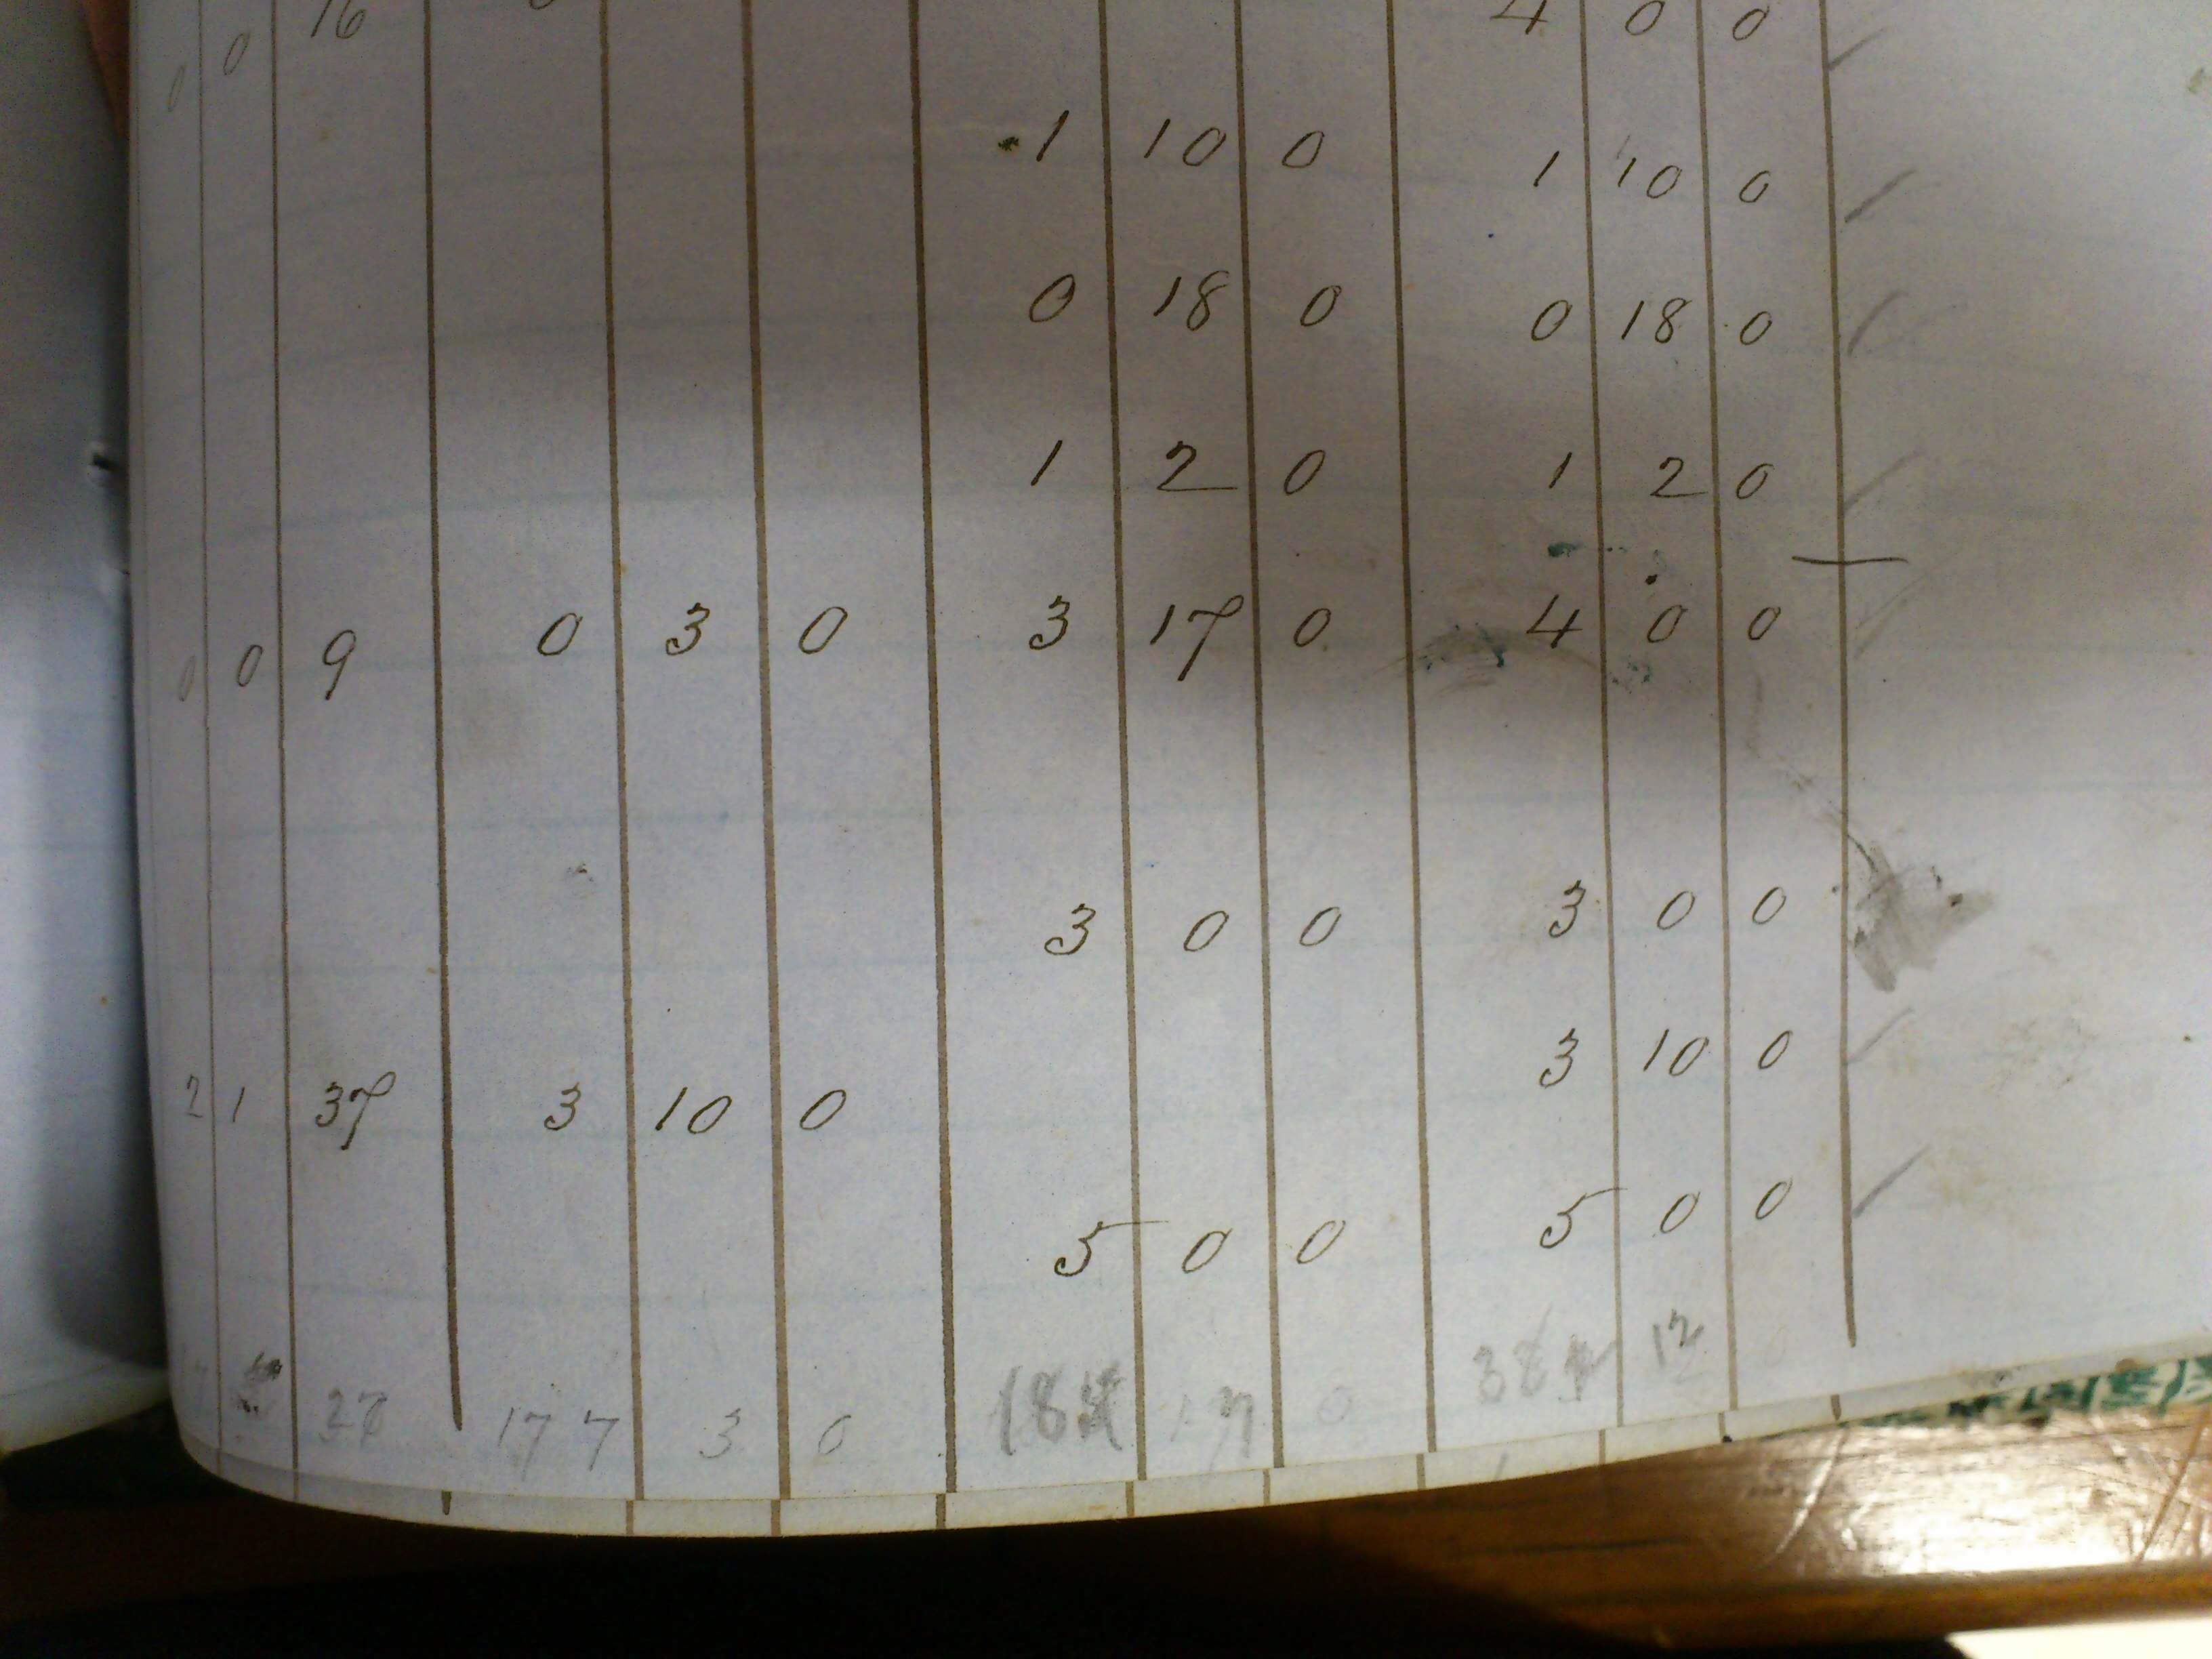 0 0 16 4 0 0
1 10 0 1 10 0
0 18 0 0 18 0
1 2 0 1 2 0
0 0 9 0 3 0 3 17 0 4 0 0
3 0 0 3 0 0
2 1 37 3 10 0 3 10 0
5 0 0 5 0 0
177 3 0 17 0 12